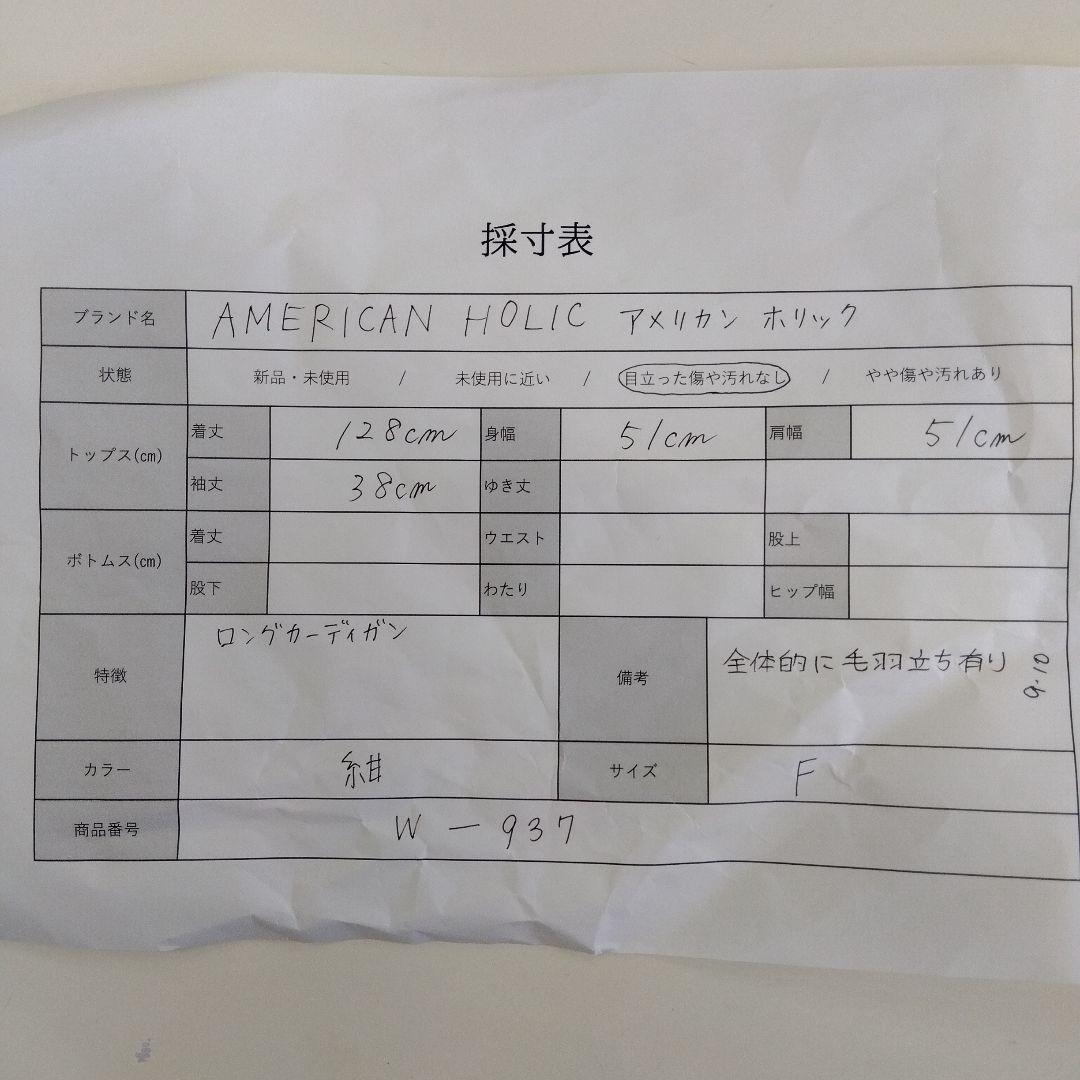 採寸表
ブランド名 AMERICAN HOLIC アメリカン ホリック
状態 新品・未使用 / 未使用に近い / 目立った傷や汚れなし / やや傷や汚れあり
トップス(cm) 着丈 128cm 身幅 51cm 肩幅 51cm
袖丈 38cm ゆき丈
ボトムス(cm) 着丈 ウエスト 股上
股下 わたり ヒップ幅
特徴 ロングカーディガン 備考 全体的に毛羽立ち有り 9.10
カラー 紺 サイズ F
商品番号 W-937